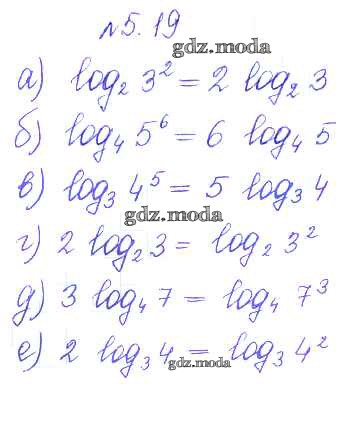 №5.19
gdz.moda
а) log₂ 3² = 2 log₂ 3
б) log₄ 5⁶ = 6 log₄ 5
в) log₃ 4⁵ = 5 log₃ 4
gdz.moda
г) 2 log₂ 3 = log₂ 3²
д) 3 log₄ 7 = log₄ 7³
е) 2 log₃ 4 = log₃ 4²
gdz.moda